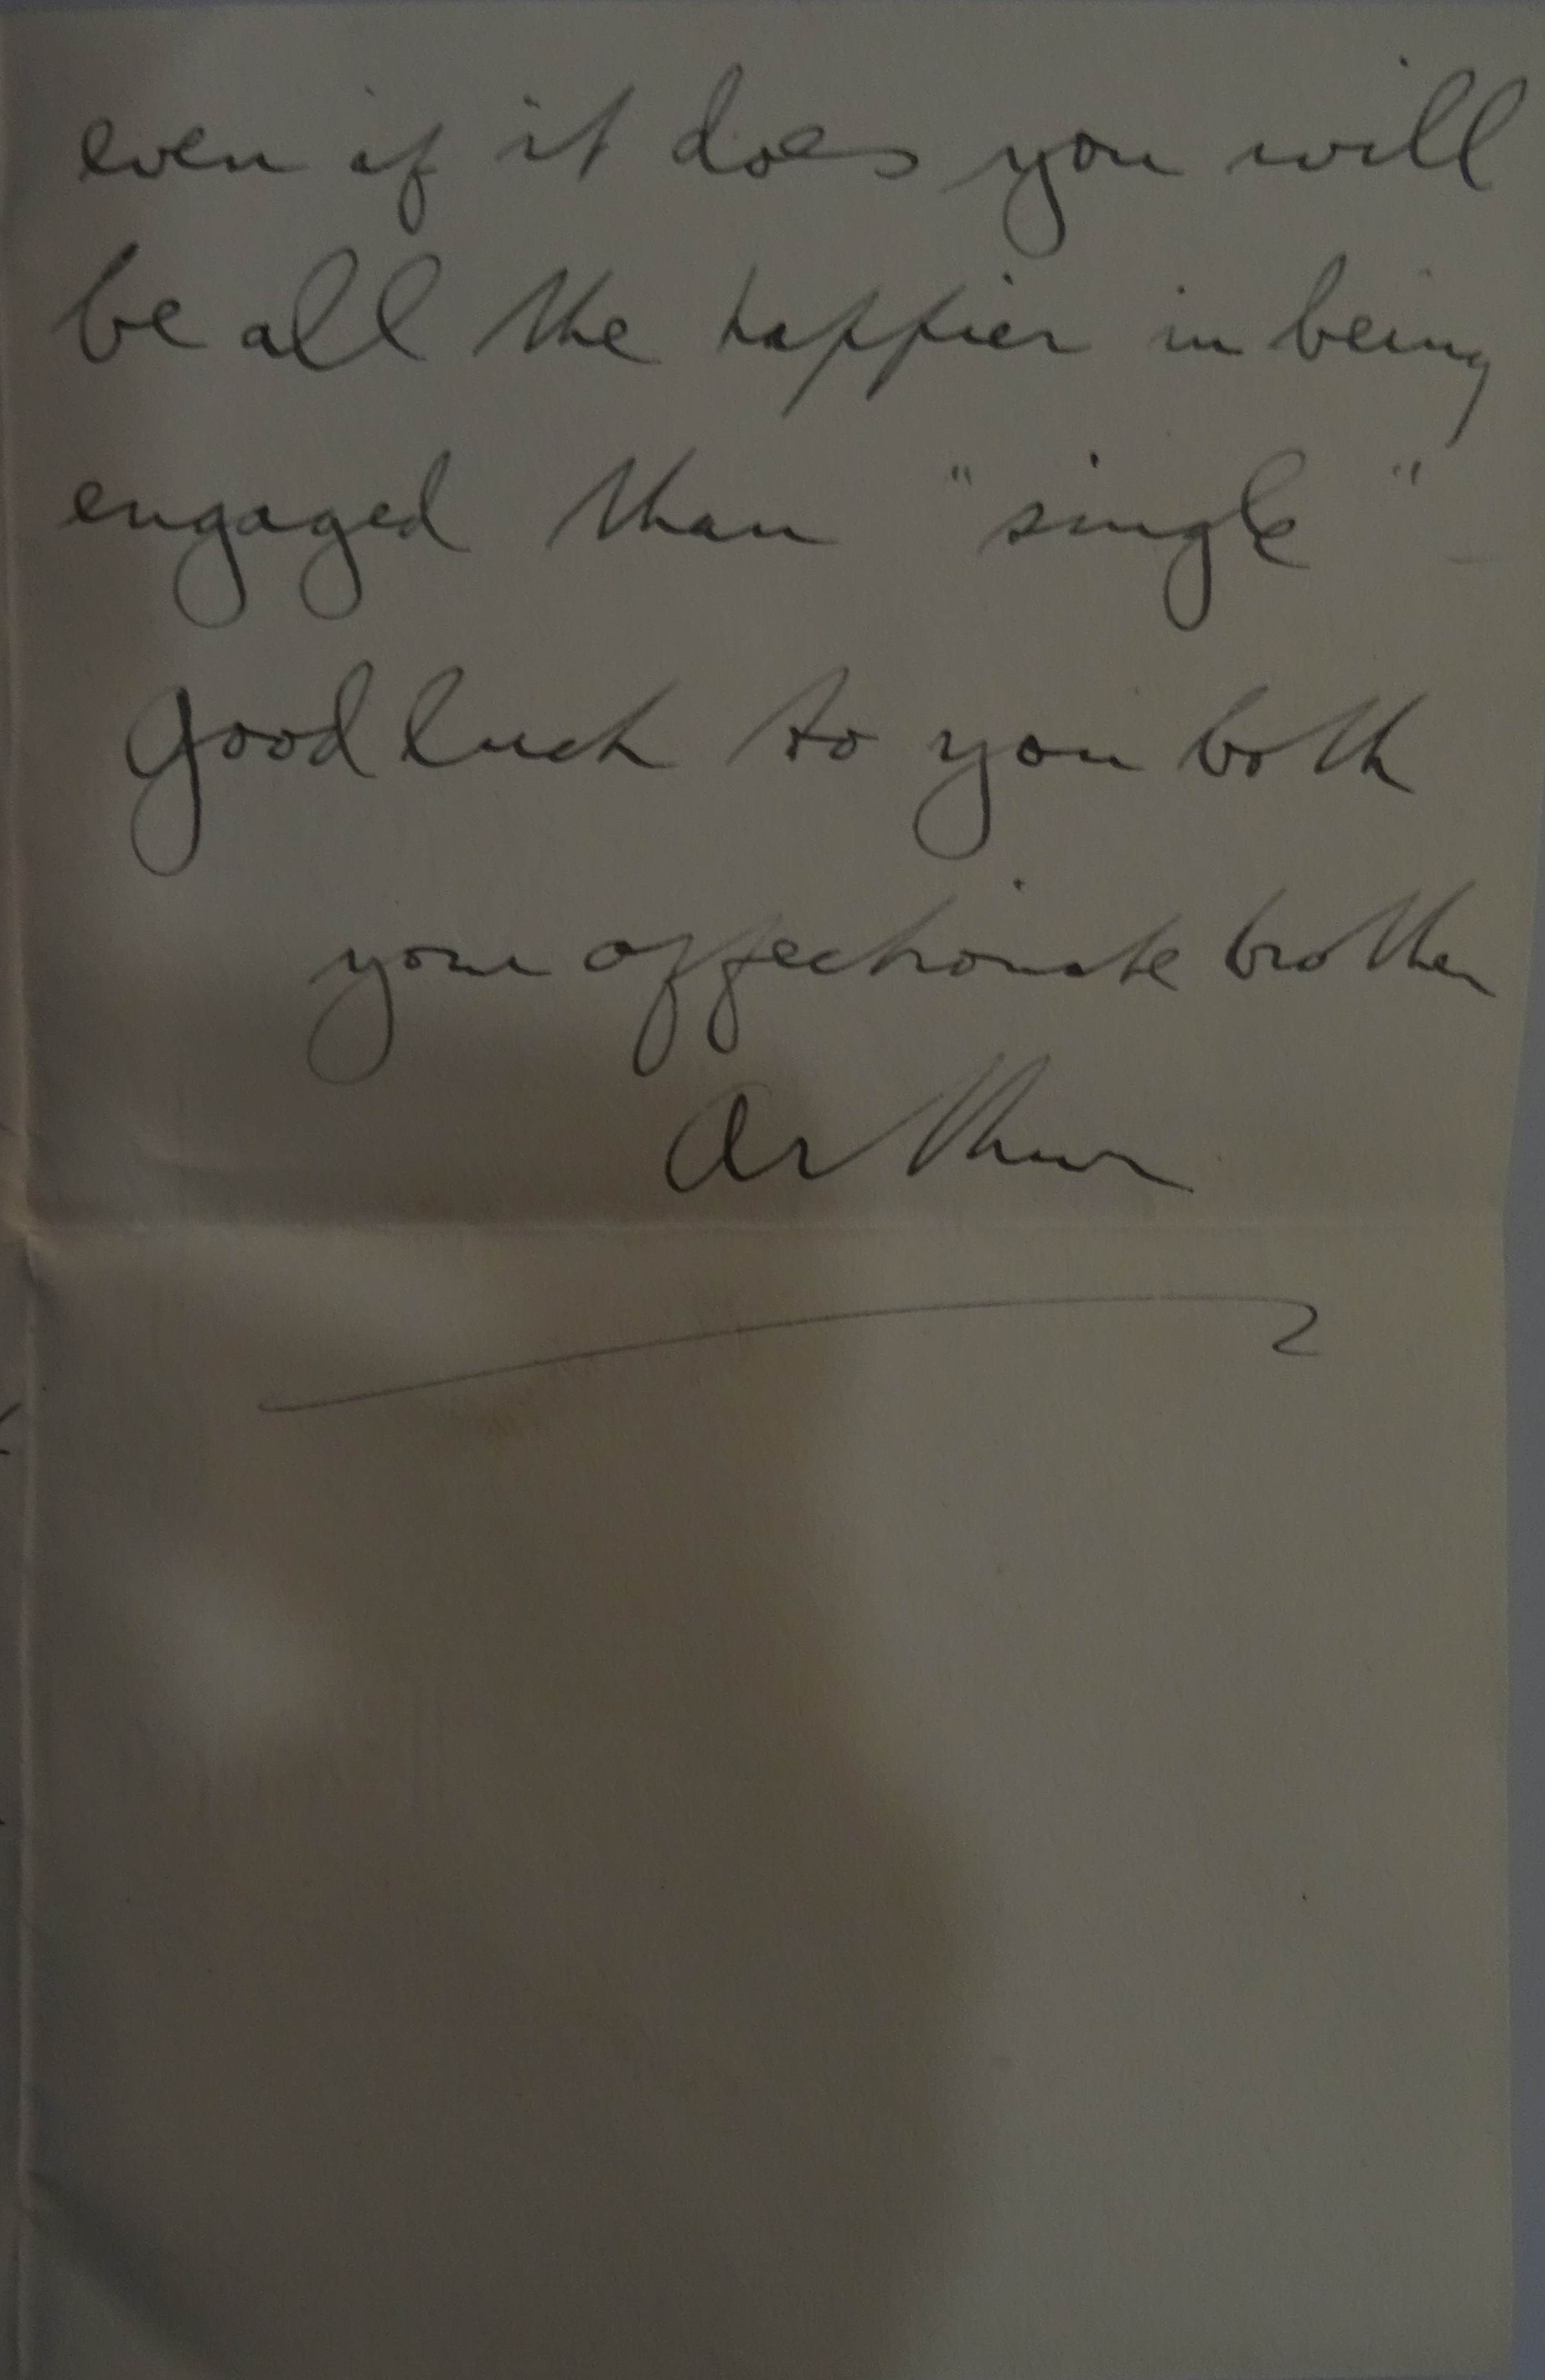 even if it does you will
be all the happier in being
engaged than "single" -
Good luck to you both
your affectionate brother
Arthur